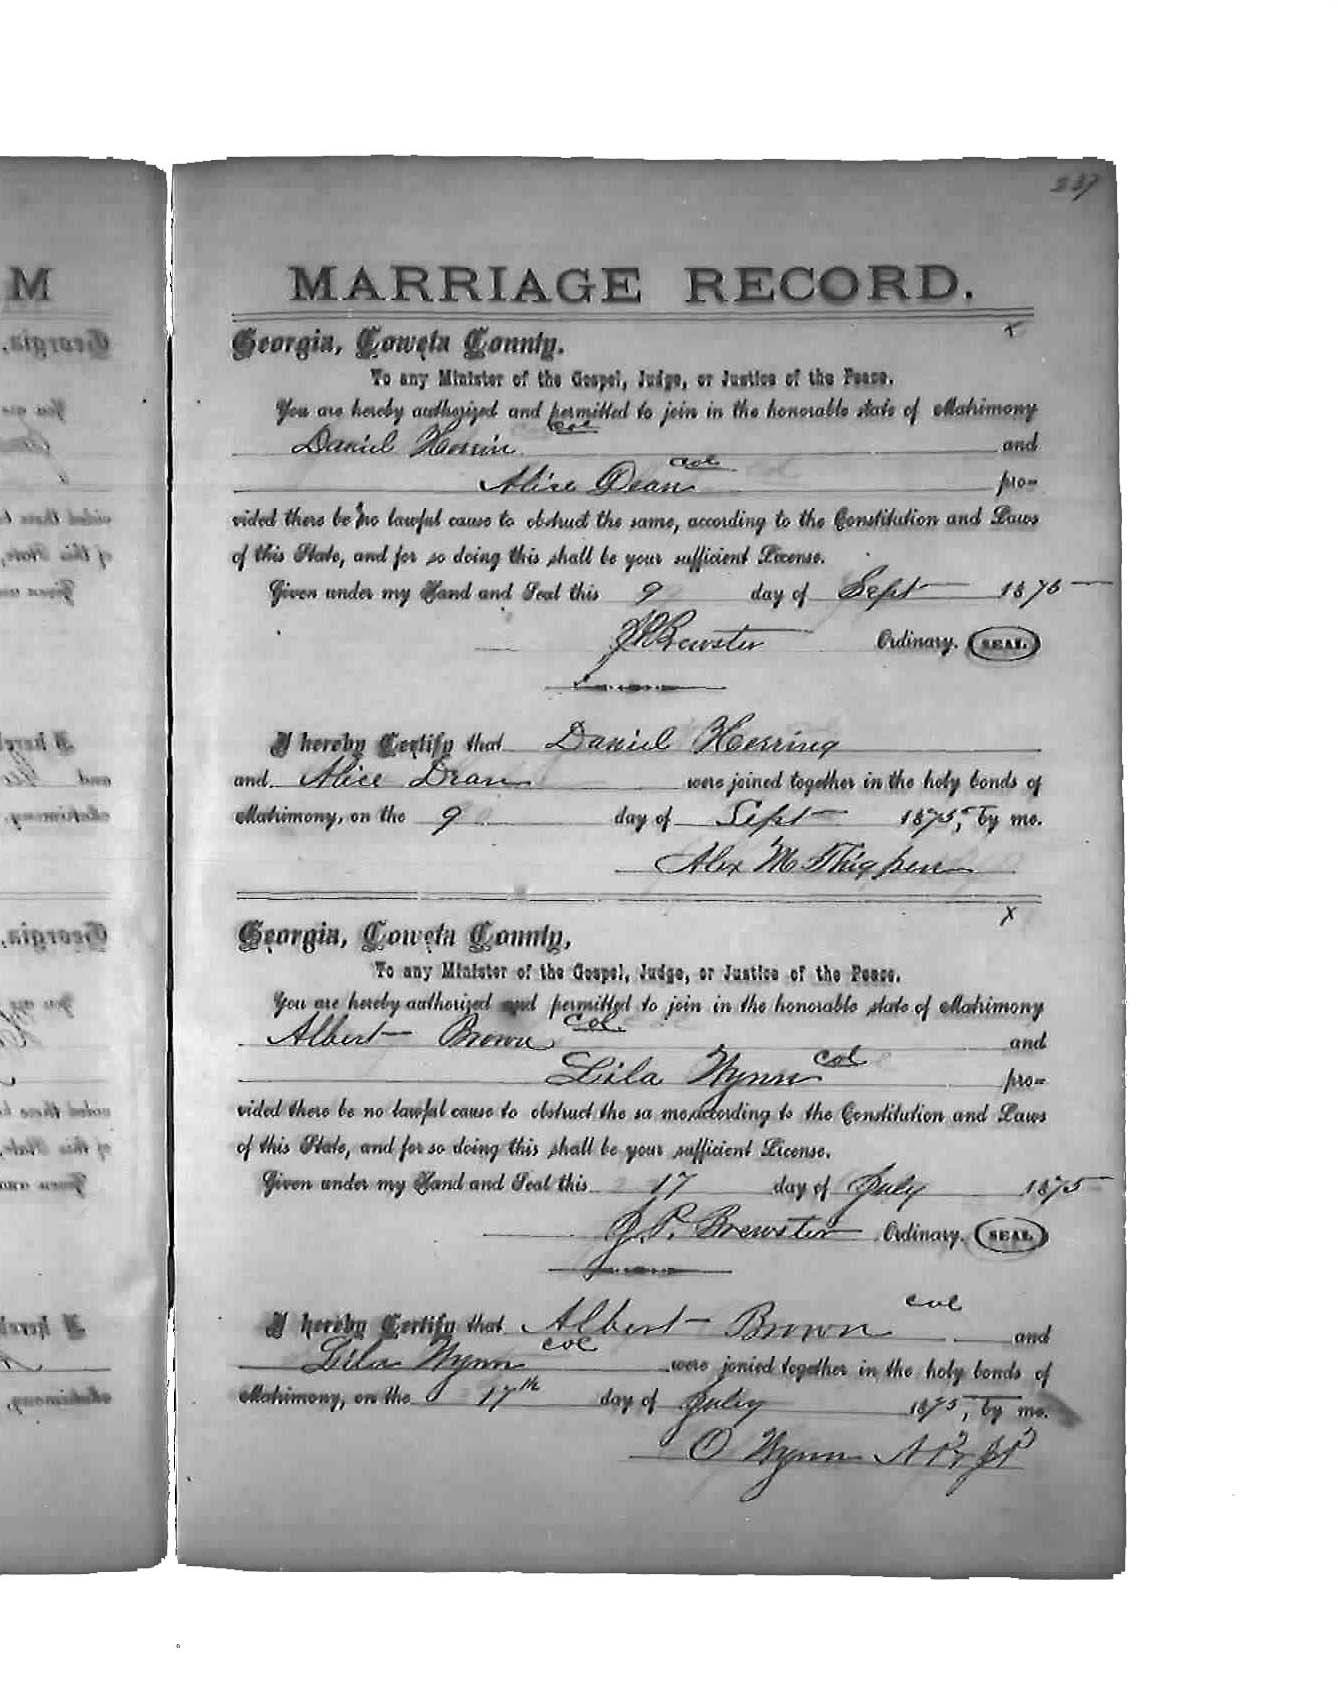 237
MARRIAGE RECORD.
x
Georgia, Coweta County.
To any Minister of the Gospel, Judge, or Justice of the Peace.
You are hereby authorized and permitted to join in the honorable state of Matrimony
Daniel Herrin col and
Alice Dean col pro=
vided there be no lawful cause to obstruct the same, according to the Constitution and Laws
of this State, and for so doing this shall be your sufficient License.
Given under my Hand and Seal this 9 day of Sept 1875
J P Brewster Ordinary. SEAL
I hereby Certify that Daniel Herring
and Alice Dean were joined together in the holy bonds of
Matrimony, on the 9 day of Sept 1875, by me.
Alex M Thigpen
x
Georgia, Coweta County,
To any Minister of the Gospel, Judge, or Justice of the Peace.
You are hereby authorized and permitted to join in the honorable state of Matrimony
Albert Brown col. and
Lila Wynn col pro=
vided there be no lawful cause to obstruct the sa me,according to the Constitution and Laws
of this State, and for so doing this shall be your sufficient License.
Given under my Hand and Seal this 17 day of July 1875
J. P. Brewster Ordinary. SEAL
I hereby Certify that Albert Brown col and
Lila Wynn col were jonied together in the holy bonds of
Matrimony, on the 17th day of July 1875, by me.
O Wynn